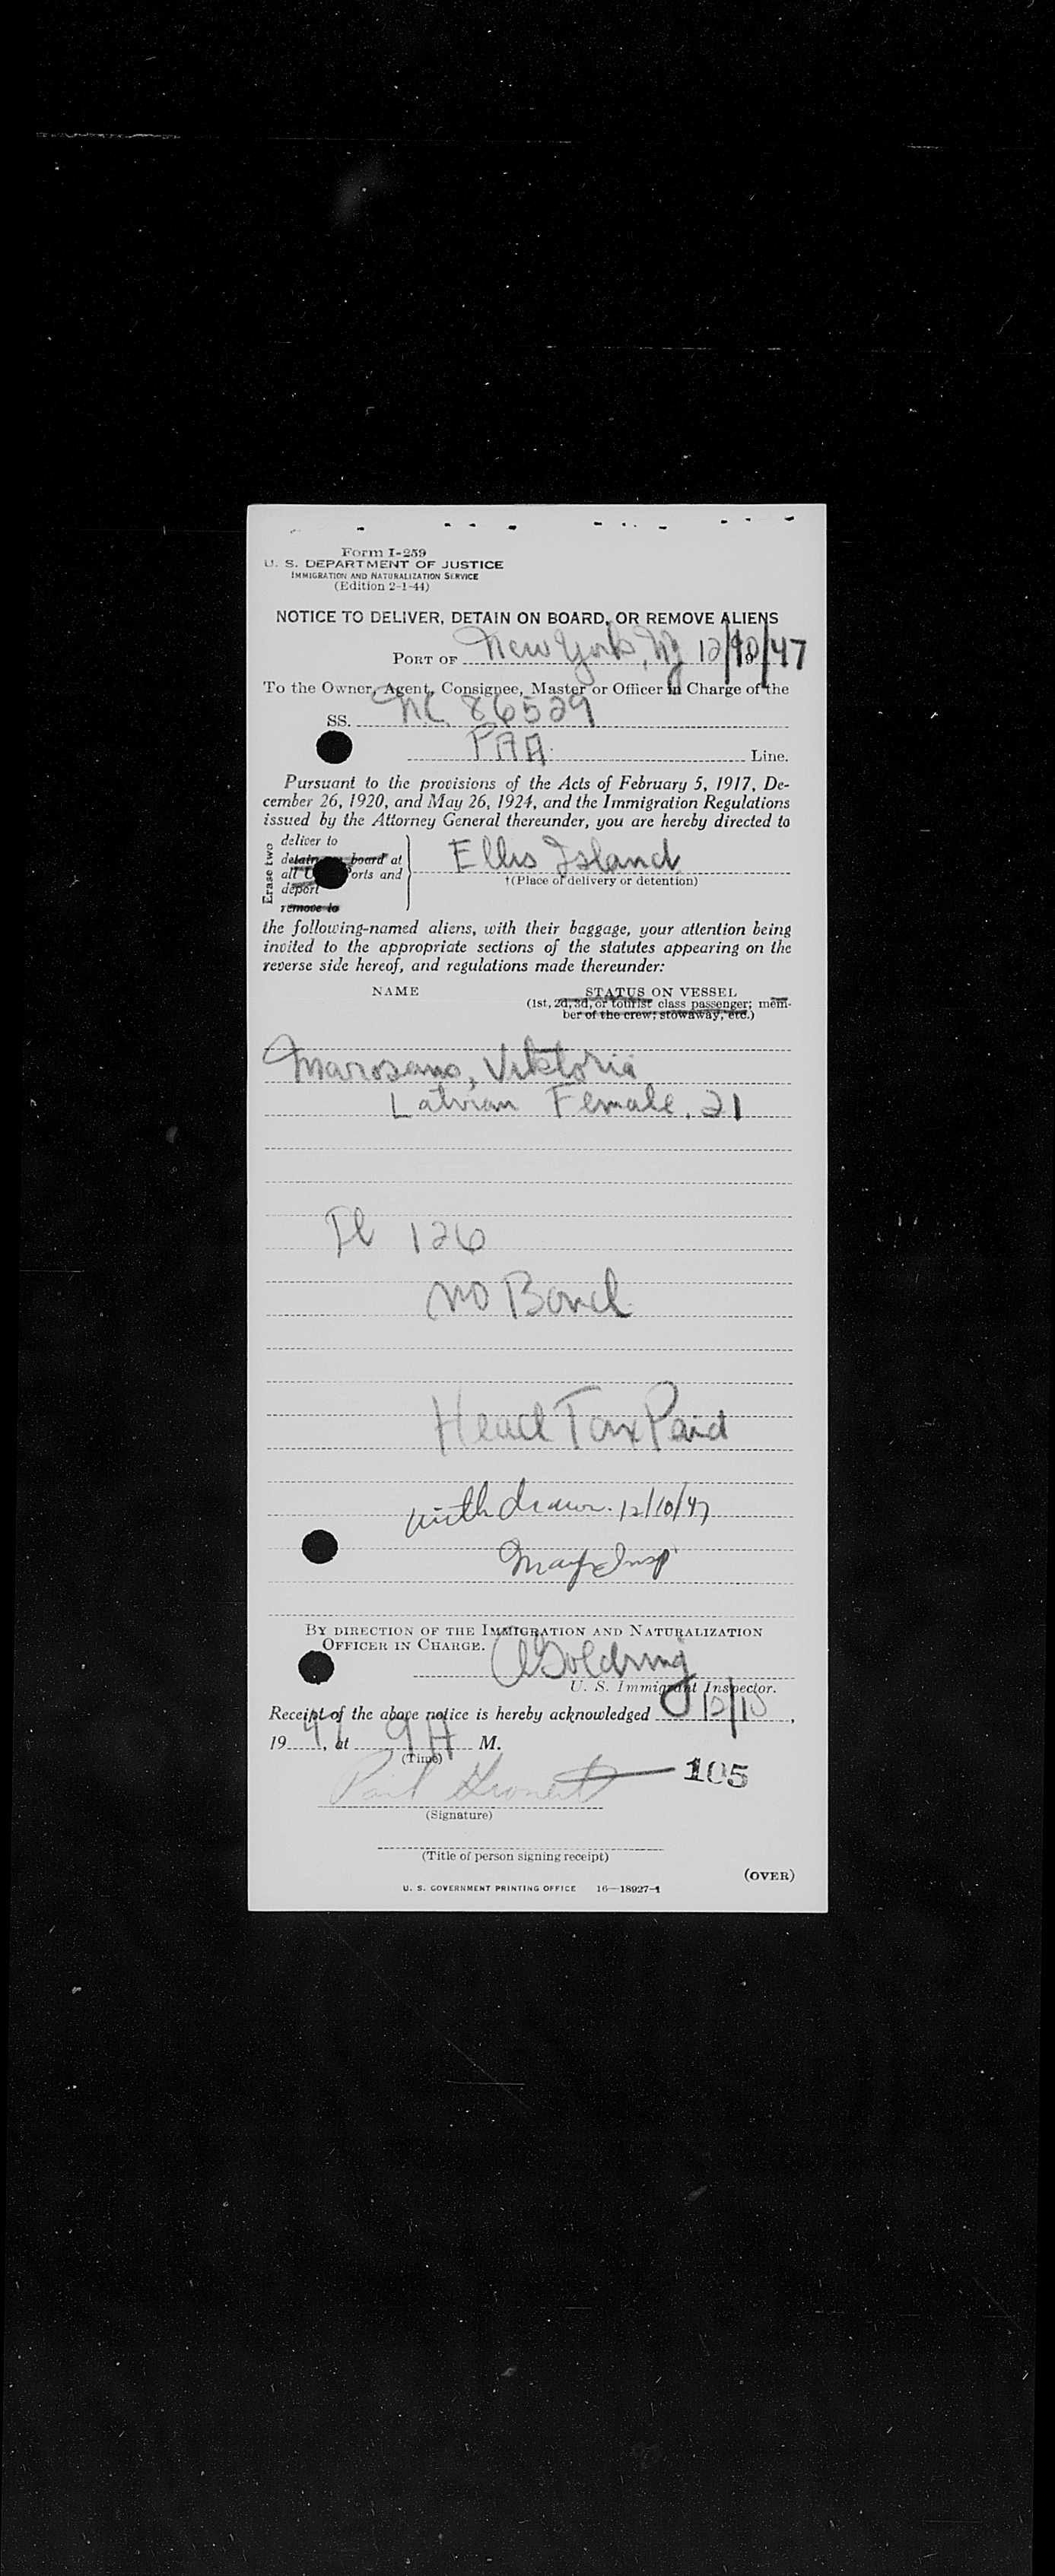 Form I-259
U. S. DEPARTMENT OF JUSTICE
IMMIGRATION AND NATURALIZATION SERVICE
(Edition 2-1-44)
NOTICE TO DELIVER, DETAIN ON BOARD, OR REMOVE ALIENS
PORT OF New York, NY 12/10/47
To the Owner, Agent, Consignee, Master or Officer in Charge of the
SS. NC 86529
PAA Line.
Pursuant to the provisions of the Acts of February 5, 1917, De-
cember 26, 1920, and May 26, 1924, and the Immigration Regulations
issued by the Attorney General thereunder, you are hereby directed to
Erase two
deliver to
detain on board at
all U orts and
deport
remove to
Ellis Island
†(Place of delivery or detention)
the following-named aliens, with their baggage, your attention being
invited to the appropriate sections of the statutes appearing on the
reverse side hereof, and regulations made thereunder:
NAME STATUS ON VESSEL
(1st, 2d, 3d, or tourist class passenger; mem-
ber of the crew; stowaway, etc.)
Marosano, Viktoria
Latvian Female. 21
126
No Bond
Head Tax Paid
withdrawn. 12/10/47
Insp
BY DIRECTION OF THE IMMIGRATION AND NATURALIZATION
OFFICER IN CHARGE.
Goldring
U. S. Immigrant Inspector.
Receipt of the above notice is hereby acknowledged 12/10,
1947, at 9 A M.
(Time)
Paul 105
(Signature)
(Title of person signing receipt)
(OVER)
U. S. GOVERNMENT PRINTING OFFICE 16—18927-1